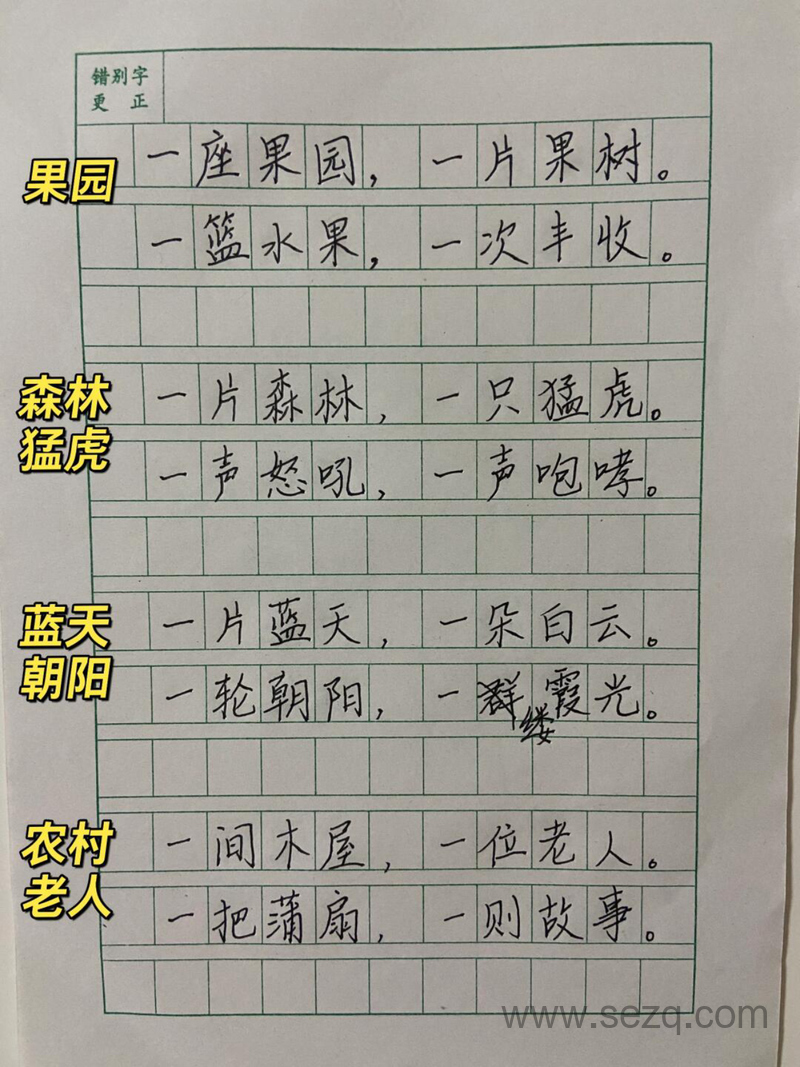 错别字
更 正
果园
一座果园，一片果树。
一篮水果，一次丰收。
森林
猛虎
一片森林，一只猛虎。
一声怒吼，一声咆哮。
蓝天
朝阳
一片蓝天，一朵白云。
一轮朝阳，一群霞光。
缕
农村
老人
一间木屋，一位老人。
一把蒲扇，一则故事。
www.sezq.com